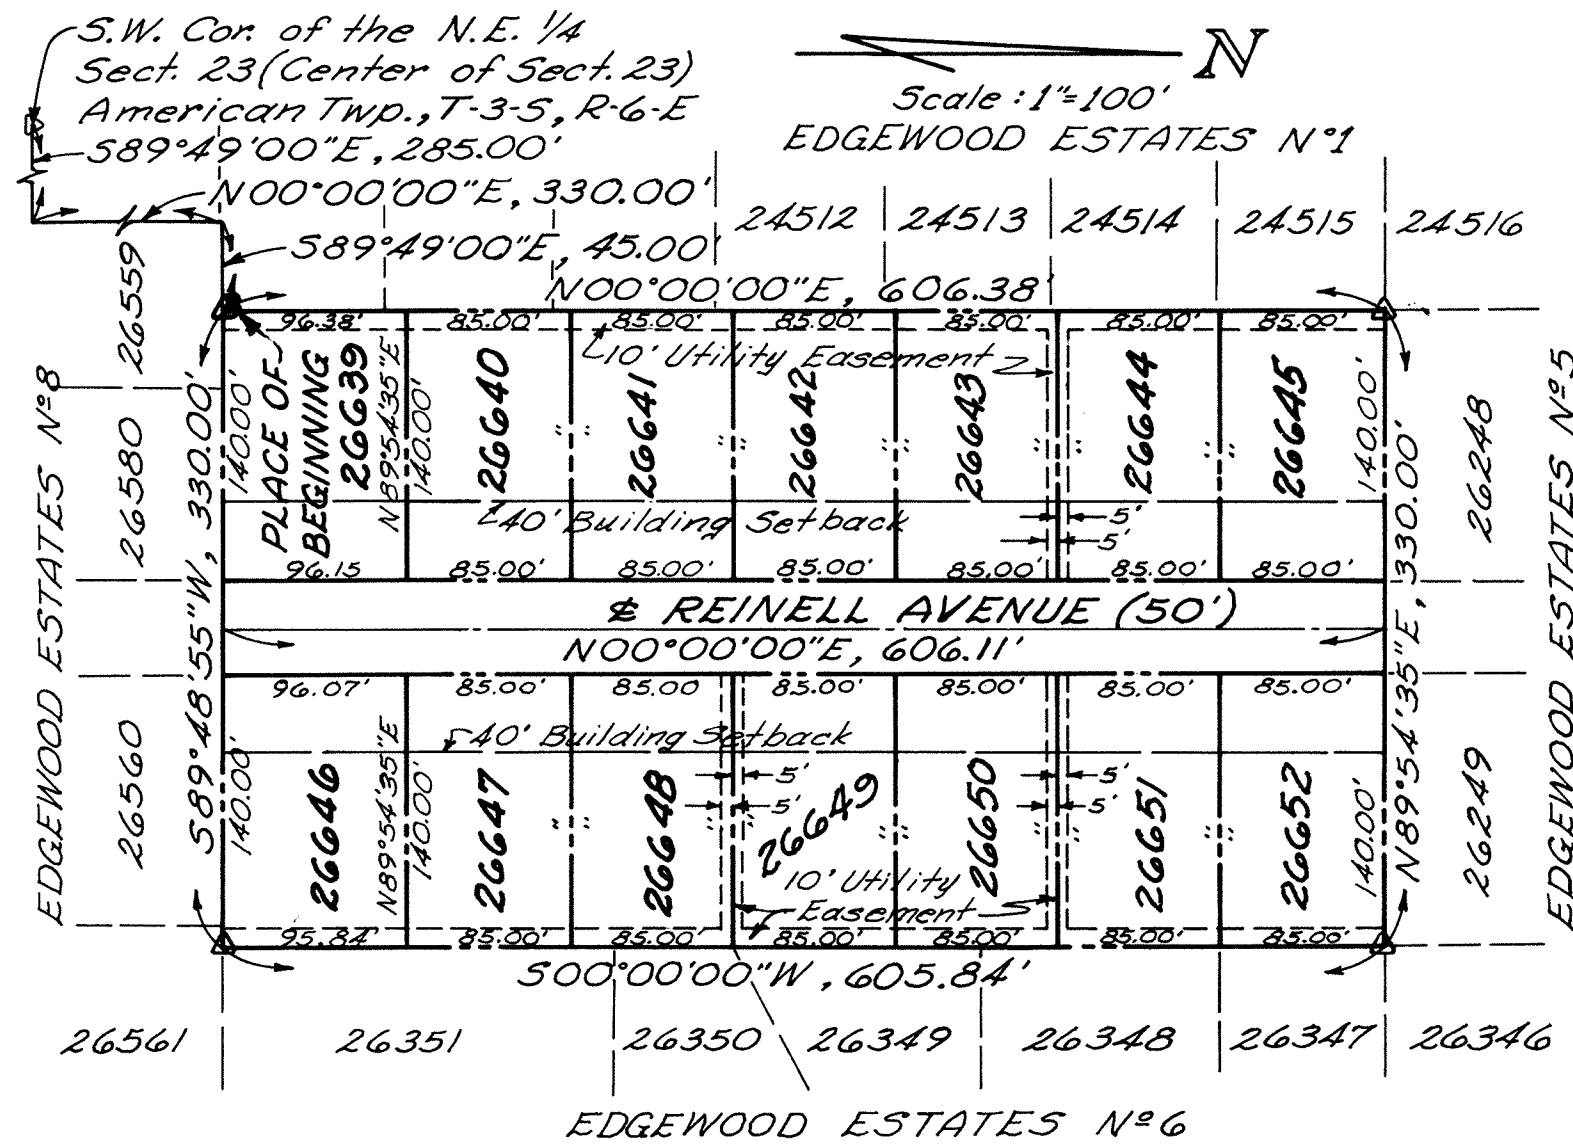 S.W. Cor. of the N.E. 1/4
Sect. 23 (Center of Sect. 23)
American Twp., T-3-S, R-6-E
S89°49'00"E, 285.00'
N00°00'00"E, 330.00'
S89°49'00"E, 45.00'
N00°00'00"E, 606.38'
N
Scale : 1"=100'
EDGEWOOD ESTATES Nº1
24512
24513
24514
24515
24516
26559
26580
26560
EDGEWOOD ESTATES Nº8
S89°48'55"W, 330.00'
96.38'
85.00'
85.00'
85.00'
85.00'
85.00'
85.00'
10' Utility Easement
140.00'
PLACE OF
BEGINNING
26639
N89°54'35"E
140.00'
26640
26641
26642
26643
26644
26645
140.00'
" "
" "
" "
" "
" "
40' Building Setback
5'
5'
96.15
85.00'
85.00'
85.00'
85.00'
85.00'
85.00'
℄ REINELL AVENUE (50')
N00°00'00"E, 606.11'
96.07'
85.00'
85.00
85.00'
85.00'
85.00'
85.00'
40' Building Setback
5'
5'
5'
5'
140.00'
26646
N89°54'35"E
140.00'
26647
26648
26649
26650
26651
26652
140.00'
" "
" "
" "
" "
" "
10' Utility
Easement
95.84'
85.00'
85.00'
85.00'
85.00'
85.00'
85.00'
S00°00'00"W, 605.84'
N89°54'35"E, 330.00'
26248
26249
EDGEWOOD ESTATES Nº5
26561
26351
26350
26349
26348
26347
26346
EDGEWOOD ESTATES Nº6